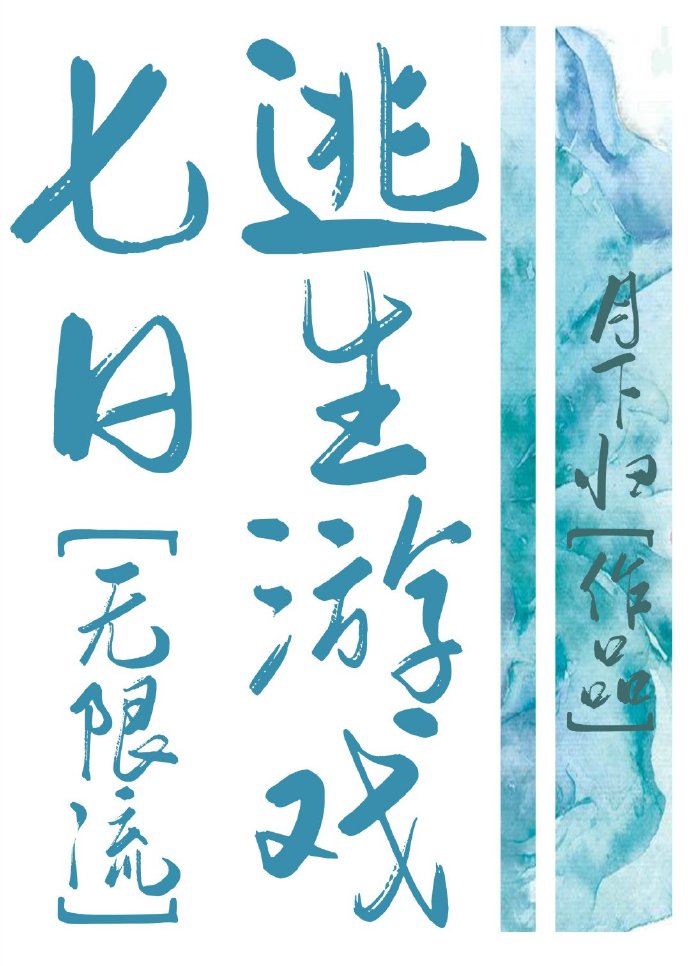 月下归[作品]
逃生游戏
七日[无限流]